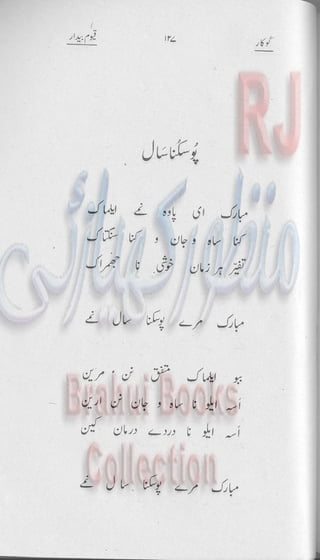 گوکار
۱۳۷
قیوم بیدار
پُوسکُنا سَال
مبارک ای پاوہ نُمے ایلماک
کنا ساہ و جان و کنا سنگتاک
تفیّر ہر زمان خوشی نا جھمراک
مبارک مرے پوسکنا سال نُمے
ببو ایلماک متفق نن مرین
اَسہ ایلو نا ساہ و جان نن ارین
اَسہ ایلو نا دردے درمان کین
مبارک مرے پوسکنا سال نُمے
RJ
منظور کہیازئی
Brahui Books
Collection